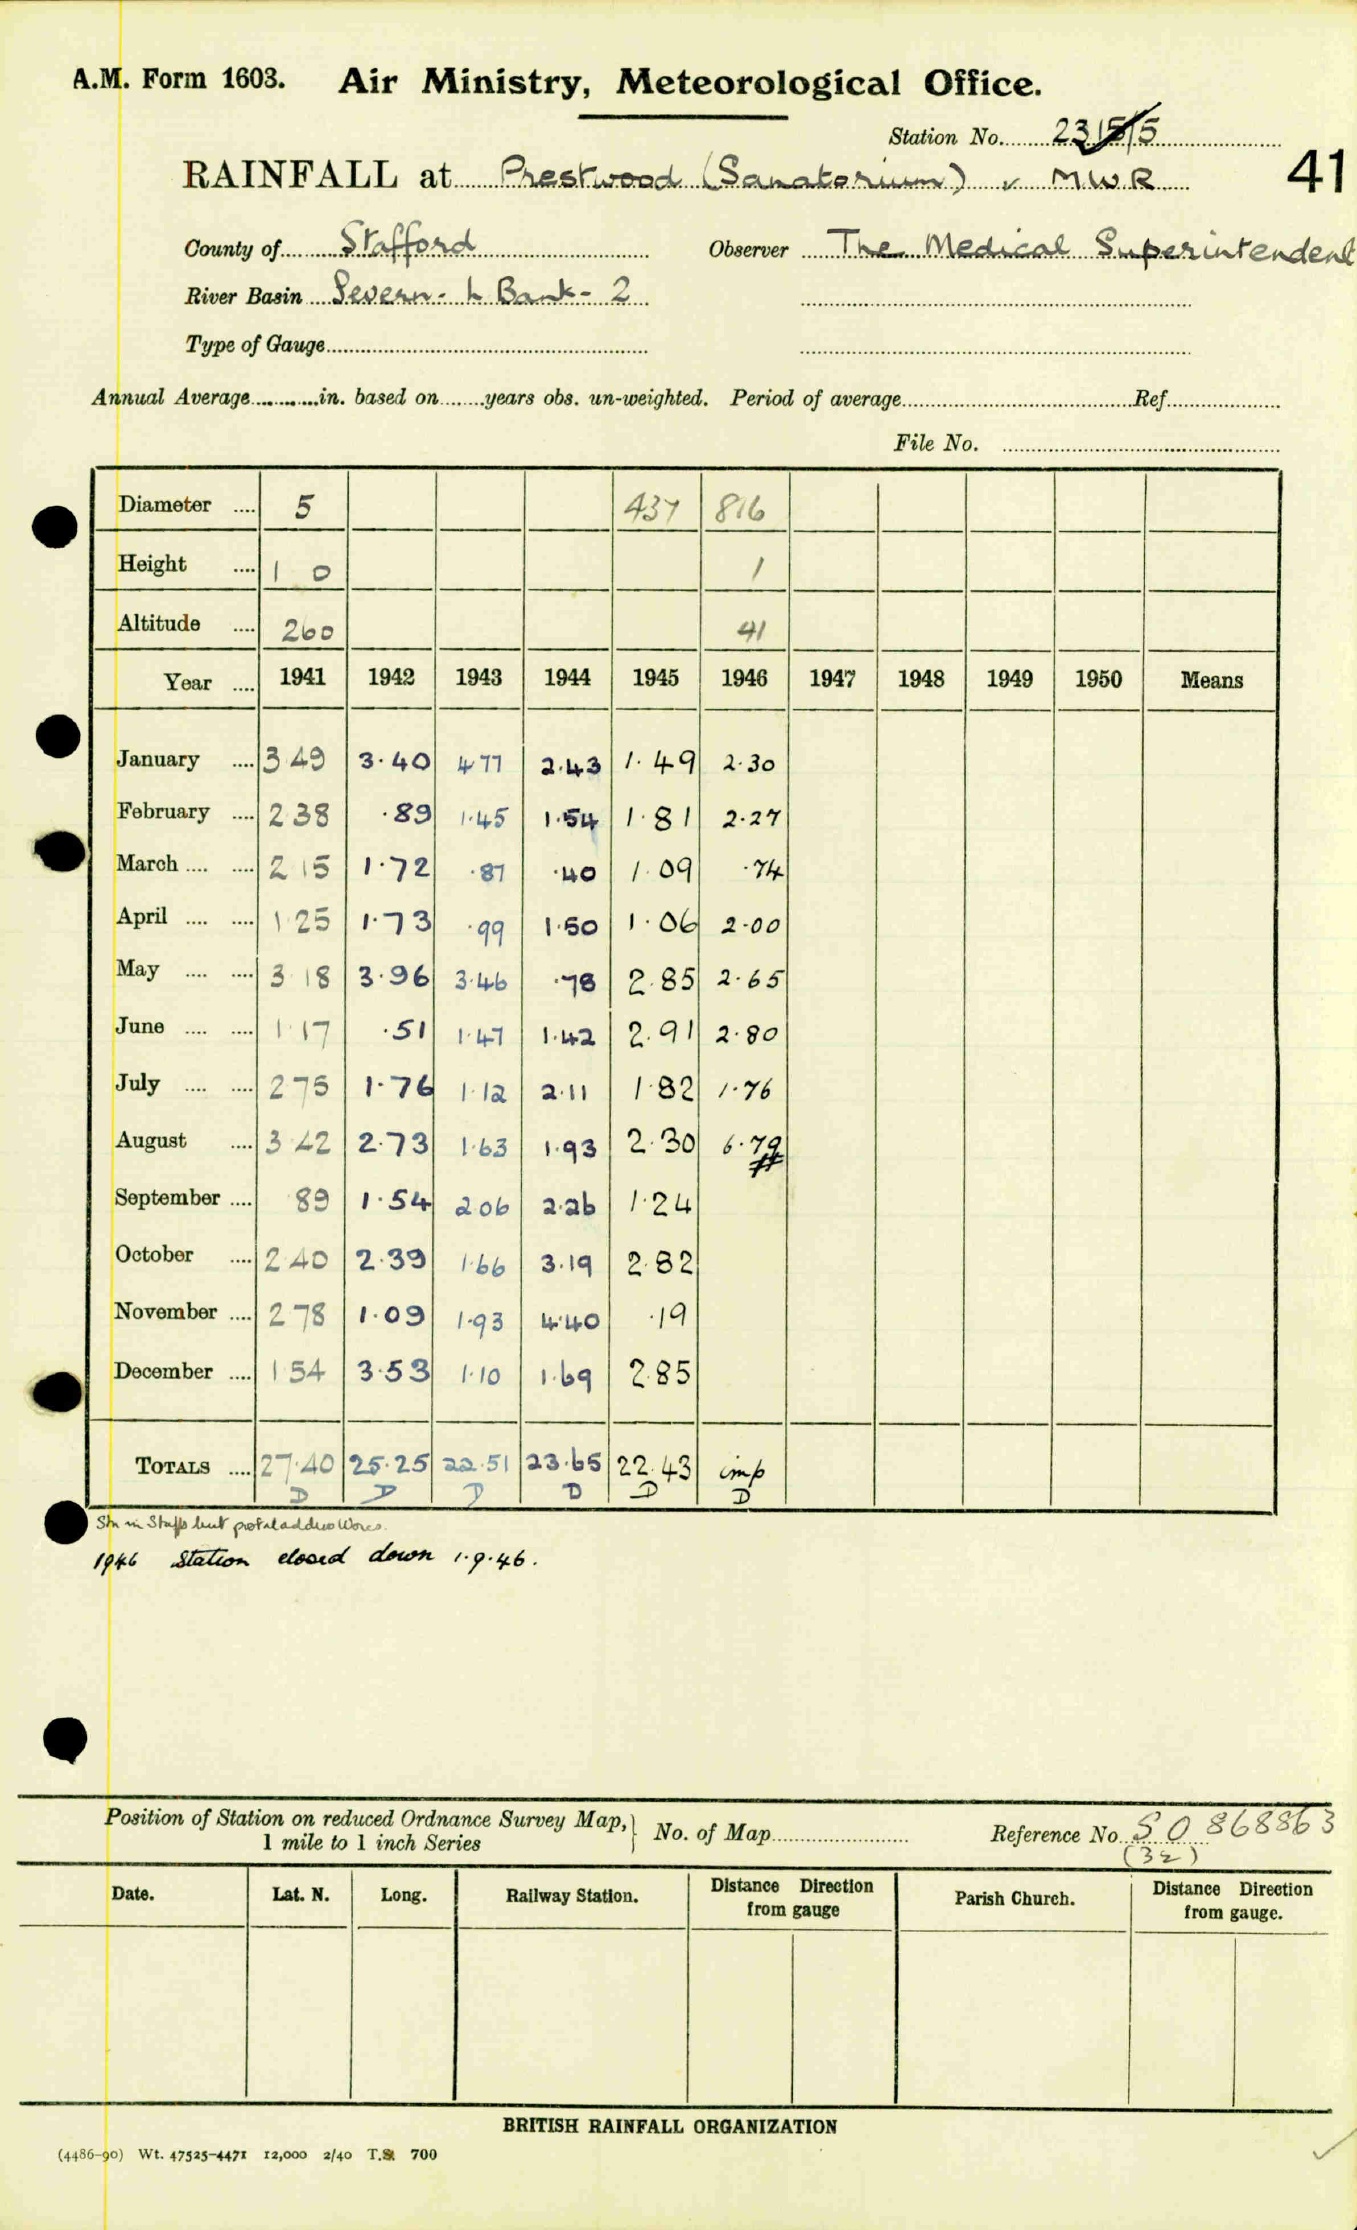 A.M. Form 1603. Air Ministry, Meteorological Office.
Station No. 2315/5
RAINFALL at Prestwood (Sanatorium) ✓ MWR 41
County of Stafford Observer The Medical Superintendent
River Basin Severn - L Bank - 2
Type of Gauge
Annual Average in. based on years obs. un-weighted. Period of average Ref
File No.
Diameter 5 437 816
Height 1 0 1
Altitude 260 41
Year 1941 1942 1943 1944 1945 1946 1947 1948 1949 1950 Means
January 3 49 3·40 4·77 2·43 1·49 2·30
February 2 38 ·89 1·45 1·54 1·81 2·27
March 2 15 1·72 ·87 ·40 1·09 ·74
April 1·25 1·73 ·99 1·50 1·06 2·00
May 3 18 3·96 3·46 ·78 2·85 2·65
June 1·17 ·51 1·47 1·42 2·91 2·80
July 2 75 1·76 1·12 2·11 1·82 1·76
August 3 42 2·73 1·63 1·93 2·30 6·79
September 89 1·54 2 06 2·26 1·24
October 2 40 2·39 1·66 3·19 2·82
November 2 78 1·09 1·93 4·40 ·19
December 1 54 3·53 1·10 1·69 2·85
TOTALS 27·40 25·25 22·51 23·65 22·43 imp
D D D D D D
Stn in Staffs but postal address Worcs.
1946 Station closed down 1·9·46.
Position of Station on reduced Ordnance Survey Map, 1 mile to 1 inch Series } No. of Map Reference No. SO 868863
(32)
Date. Lat. N. Long. Railway Station. Distance Direction from gauge Parish Church. Distance Direction from gauge.
BRITISH RAINFALL ORGANIZATION
(4486-90) Wt. 47525-4471 12,000 2/40 T.S. 700